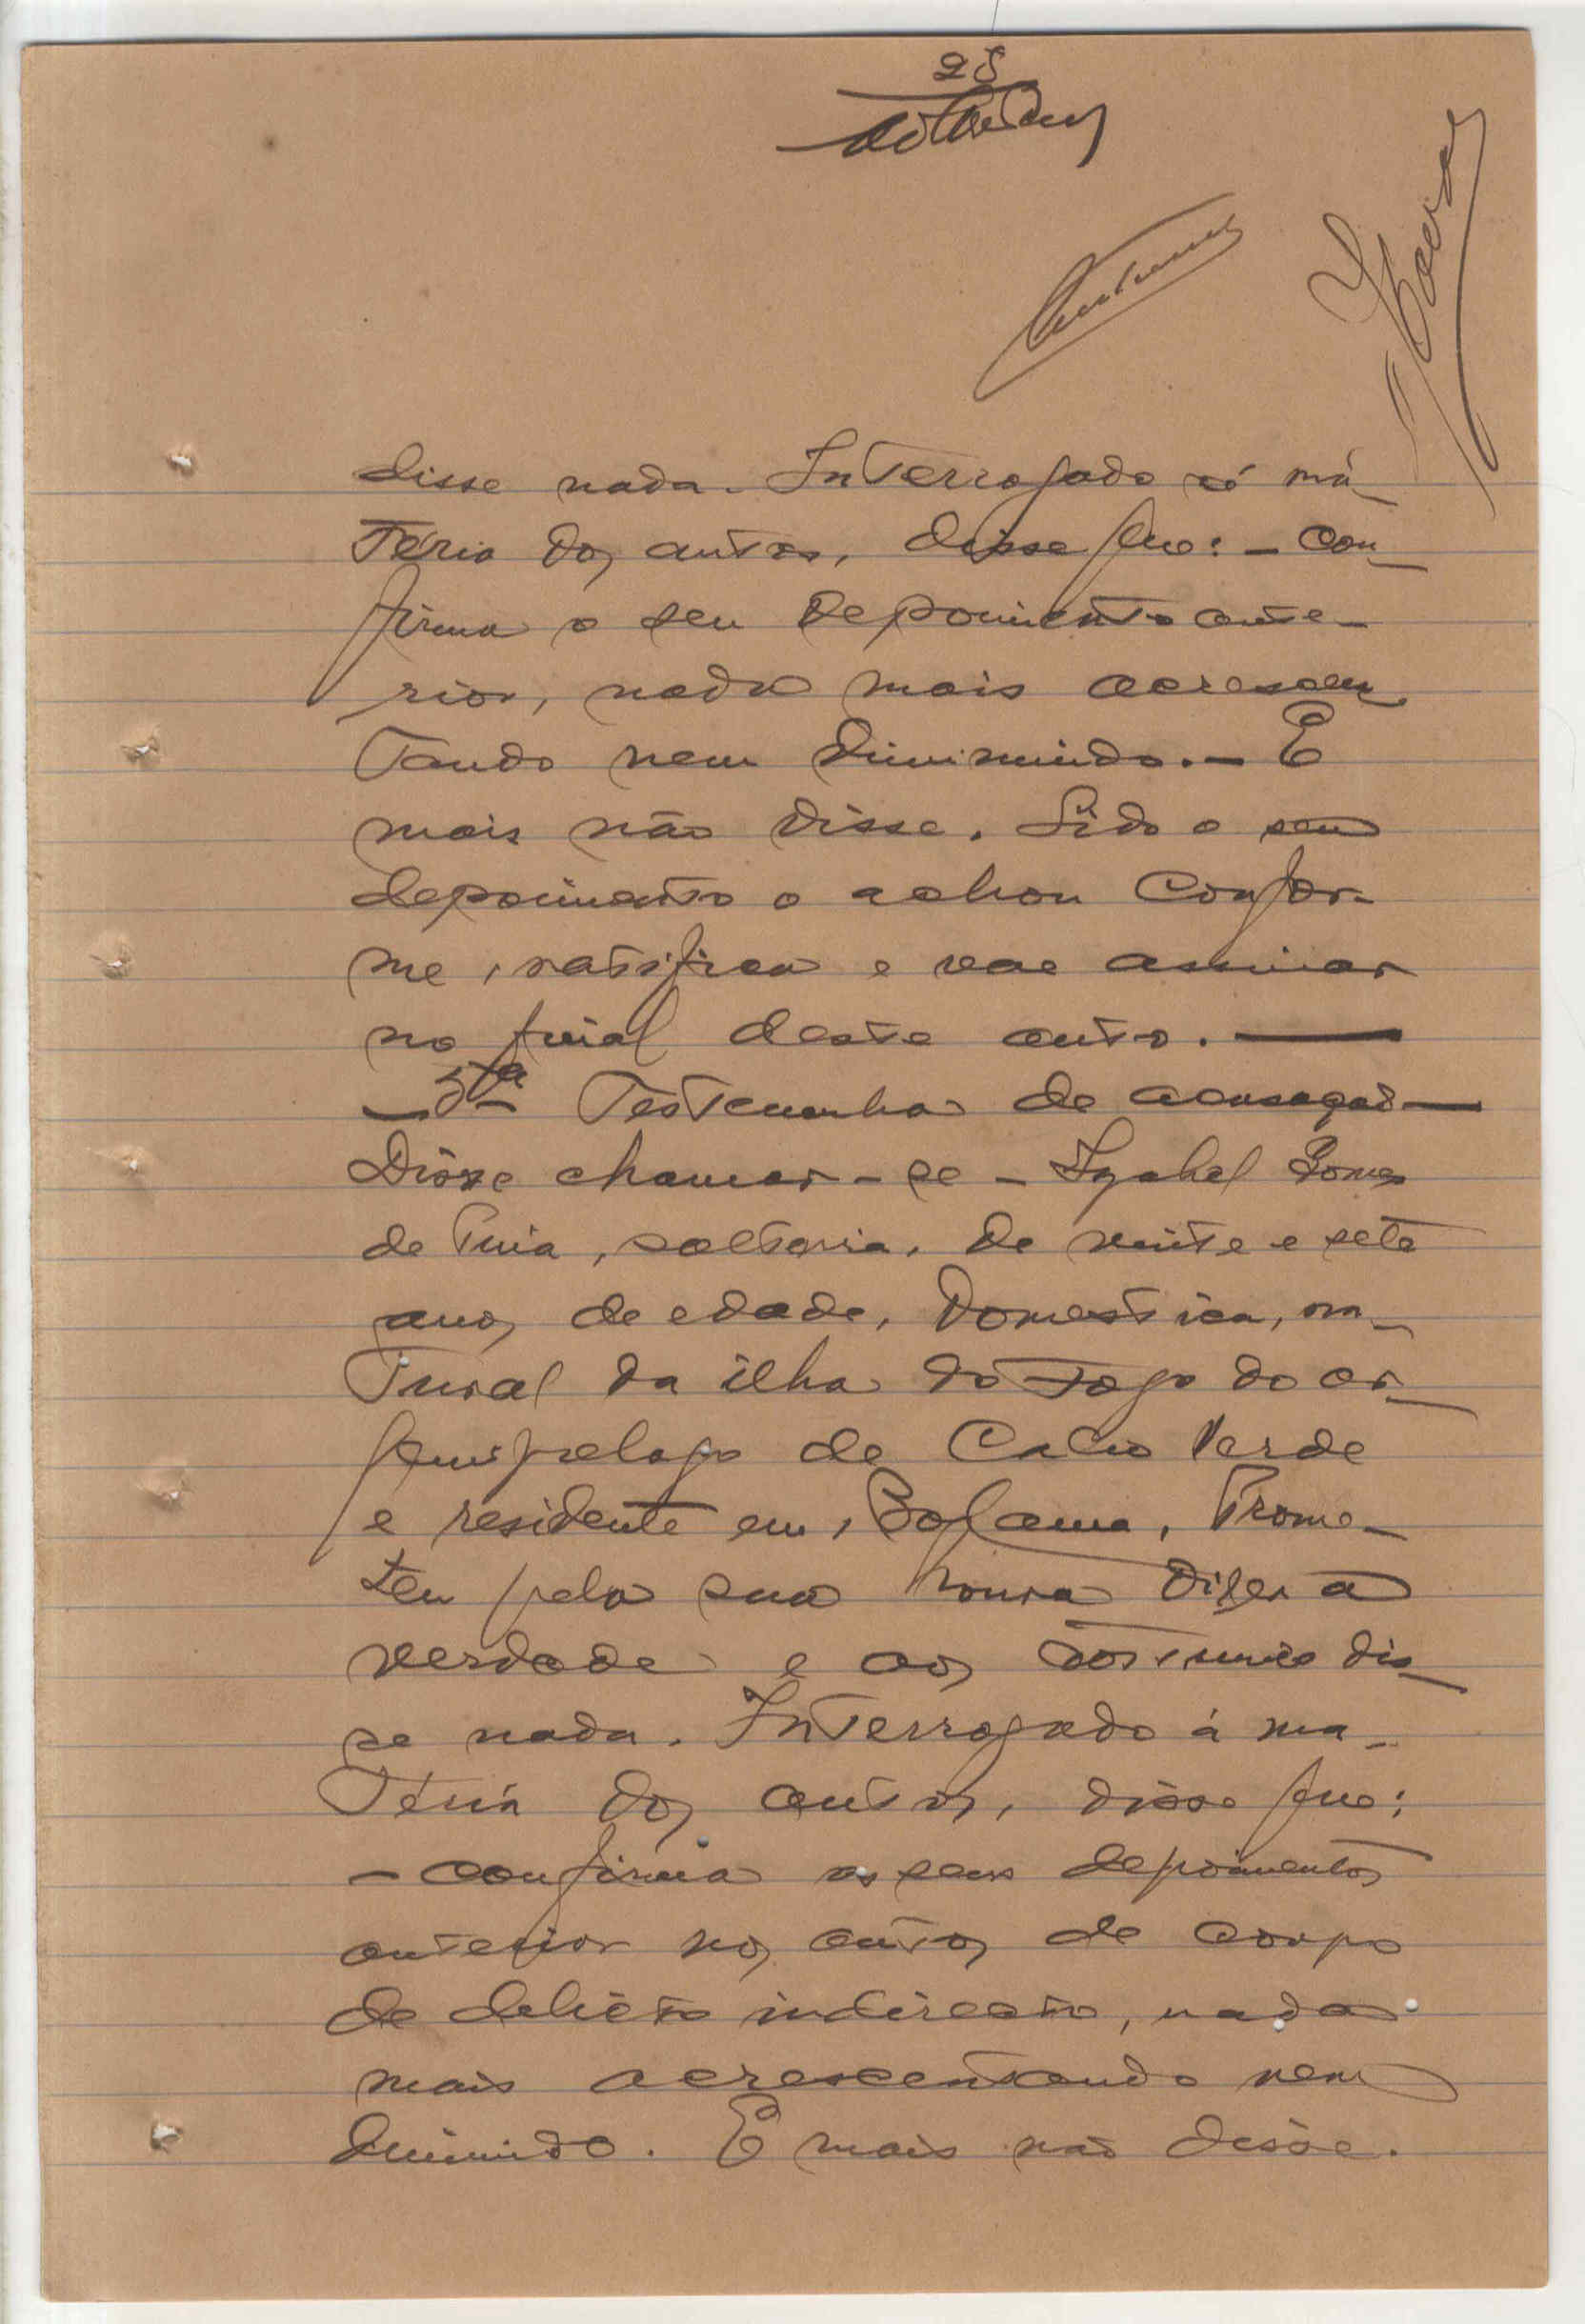 28
Antunes
disse nada. Interrogado á má-
teria dos autos, disse que: - con-
firma o seu depoimento ante-
rior, nada mais acrescen-
tando nem diminuindo. - E
mais não disse. Lido o seu
depoimento o achou confor-
me, ratifica e vae assinar
no final deste auto. —
- 5ª Testemunha de acusação -
Disse chamar-se - Izabel Gomes
de Pina, solteira, de vinte e sete
anos de edade, domestica, na-
tural da ilha do Fogo do ar-
quipelago de Cabo Verde
e residente em, Bolama, Prome-
teu pela sua honra dizer a
verdade e aos costumes dis-
se nada. Interrogado á ma-
teria dos autos, disse que:
- confirma os seus depoimentos
anterior nos autos de corpo
de delicto indirecto, nada
mais acrescentando nem
diminuido. E mais não disse.